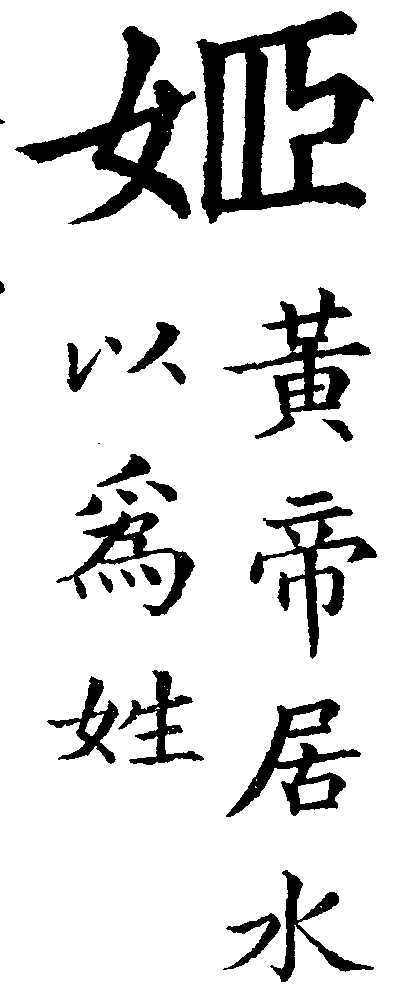 姬
黃帝居水
以爲姓